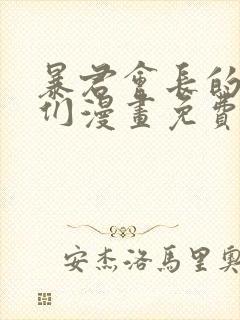 暴君會長的
们漫畫免費
安杰洛馬里奧